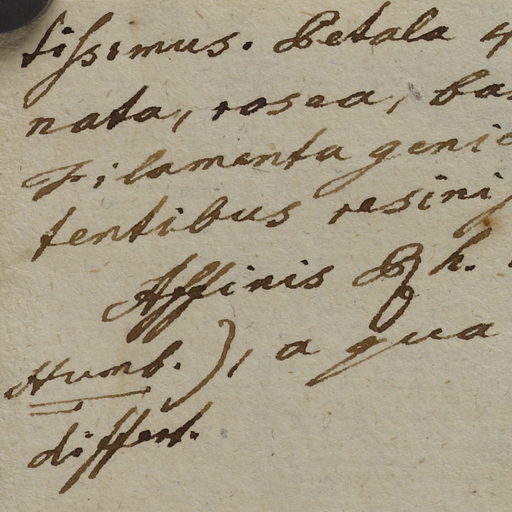 tissimus. Petala 4
nata, rosea, ba
Filamenta genic
tentibus resini
Affinis Rh.
Humb.), a qua
differt.